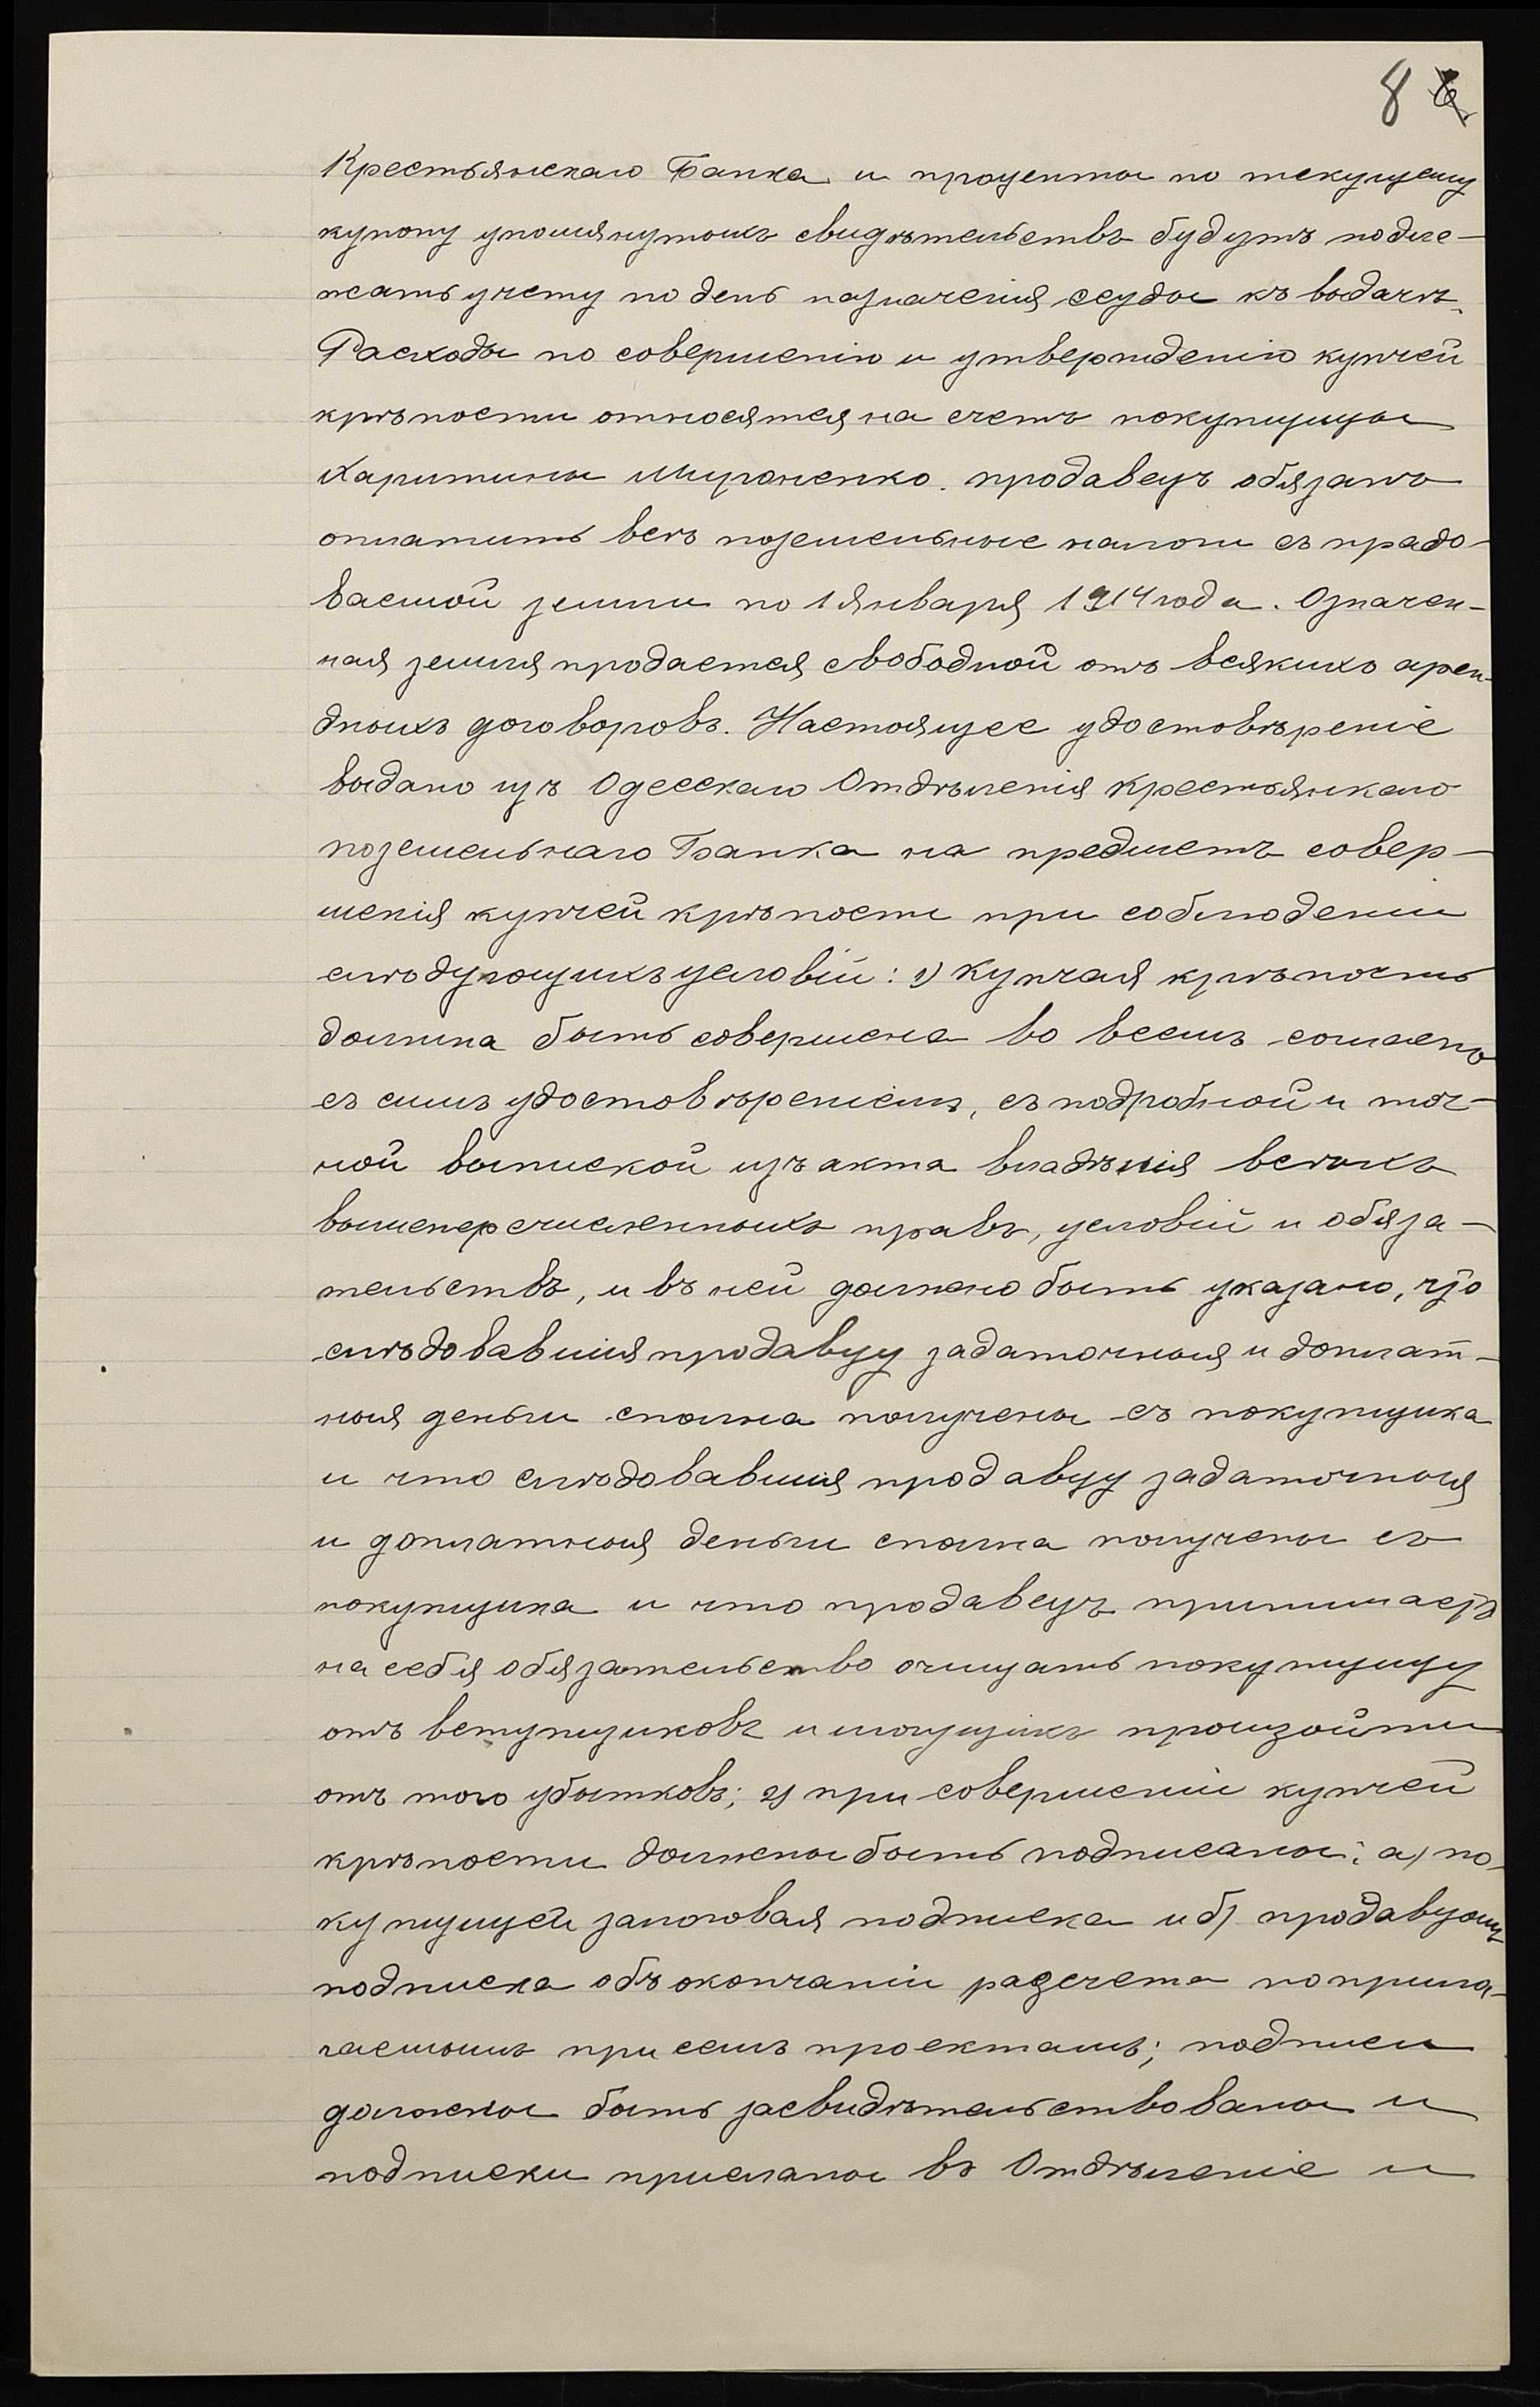 8
Крестьянскаго Банка и проценты по текущему
купону упомянутыхъ свидѣтельствъ будутъ подле-
жать учету по день назначенія ссуды къ выдачѣ.
Расходы по совершенію и утвержденію купчей
крѣпости относятся на счетъ покупщицы
Харитины Мироненко. продавецъ обязанъ
оплатить всѣ поземельные налоги съ прадо-
ваемой земли по 1 Января 1914 года. Означен-
ная земля продается свободной отъ всякихъ арен-
дныхъ договоровъ. Настоящее удостовѣреніе
выдано изъ Одесскаго Отдѣленія Крестьянскаго
поземельнаго Банка на предметъ совер-
шенія купчей крѣпости при соблюденіи
слѣдующихъ условій: 1) Купчая крѣпость
должна быть совершена во всемъ согласно
съ симъ удостовѣреніемъ, съ подробной и точ-
ной выпиской изъ акта владѣнія всѣхъ
вышеперечисленныхъ правъ, условій и обяза-
тельствъ, и въ ней должно быть указано, что
слѣдовавшія продавцу задаточныя и доплат-
ныя деньги сполна получены съ покупщика
и что слѣдовавшія продавцу задаточныя
и доплатныя деньги сполна получены съ
покупщика и что продавецъ принимаетъ
на себя обязательство очищать покупщицу
отъ вступщиковъ и могущихъ произойти
отъ того убытковъ; 2) при совершеніи купчей
крѣпости должны быть подписаны: а) по-
купщицей залоговая подписка и б) продавцомъ
подписка объ окончаніи разсчета по прила-
гаемымъ при семъ проектамъ; подписи
должны быть засвидѣтельствованы и
подписки присланы въ Отдѣленіе и